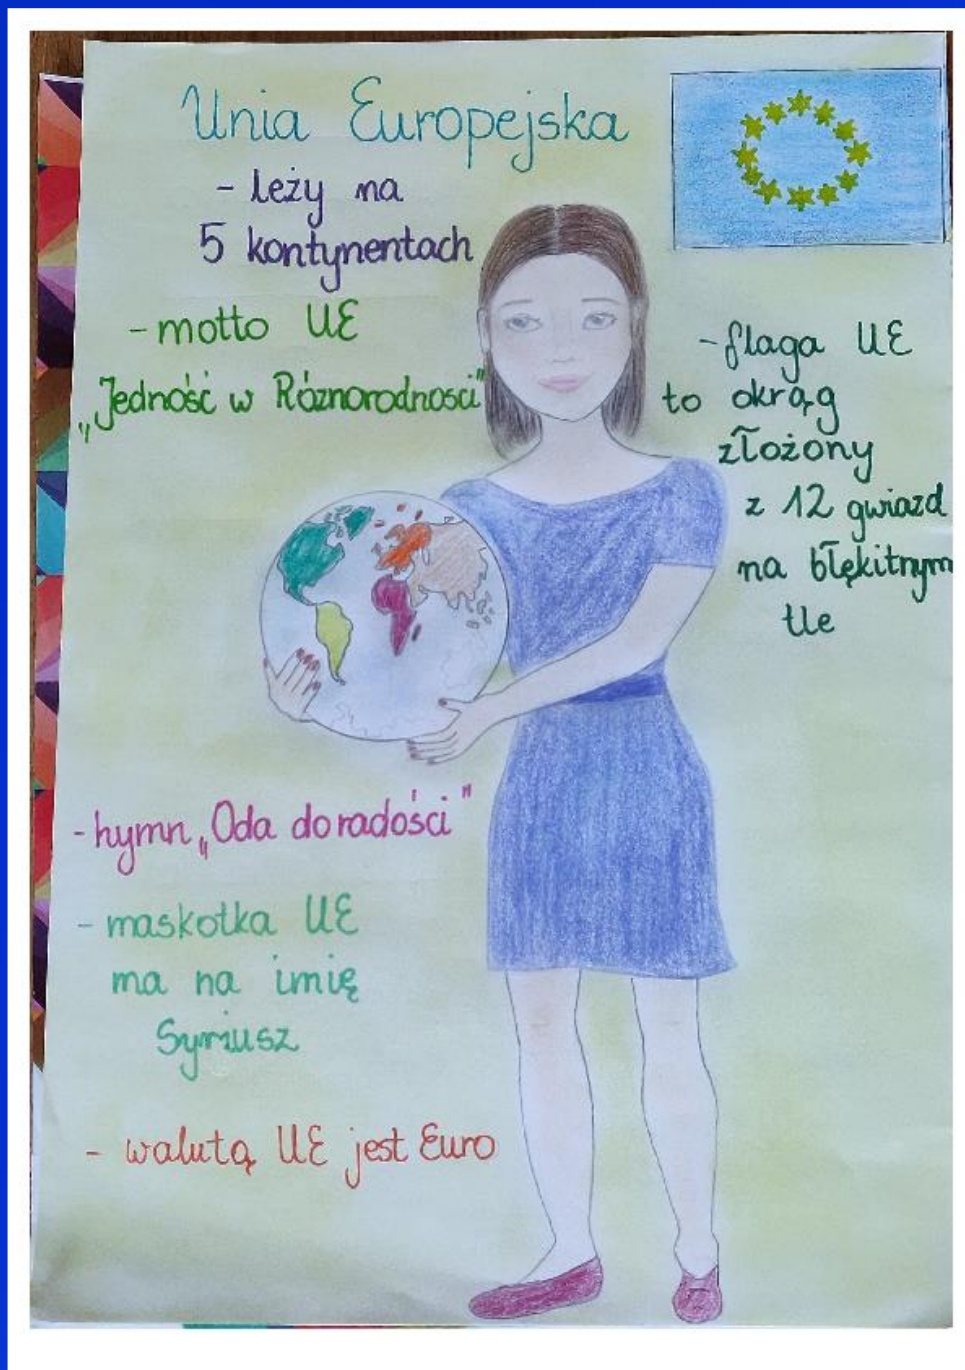 Unia Europejska
- leży na
5 kontynentach
- motto UE
„Jedność w Różnorodnosci"
- flaga UE
to okrąg
złożony
z 12 gwiazd
na błękitnym
tle
- hymn „Oda do radości"
- maskotka UE
ma na imię
Syriusz
- walutą UE jest Euro